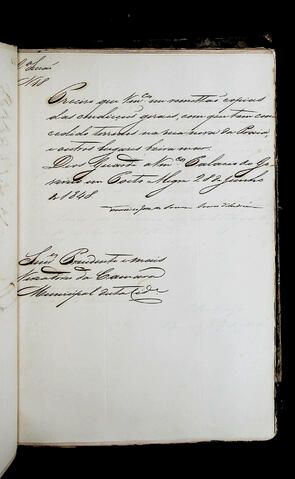 N 48
Preciso que Vm.ces me remettão copias
das condições geraes, com que tem con
cedido terrenos na rua nova da Praia,
e outros lugares beira mar.
Deos Guarde a Vm.ces Palacio do Go
verno em Porto Alegre 28 de Junho
de 1848
Snr.es Presidente e mais
Vereadores da Camara
Municipal desta Cid.e